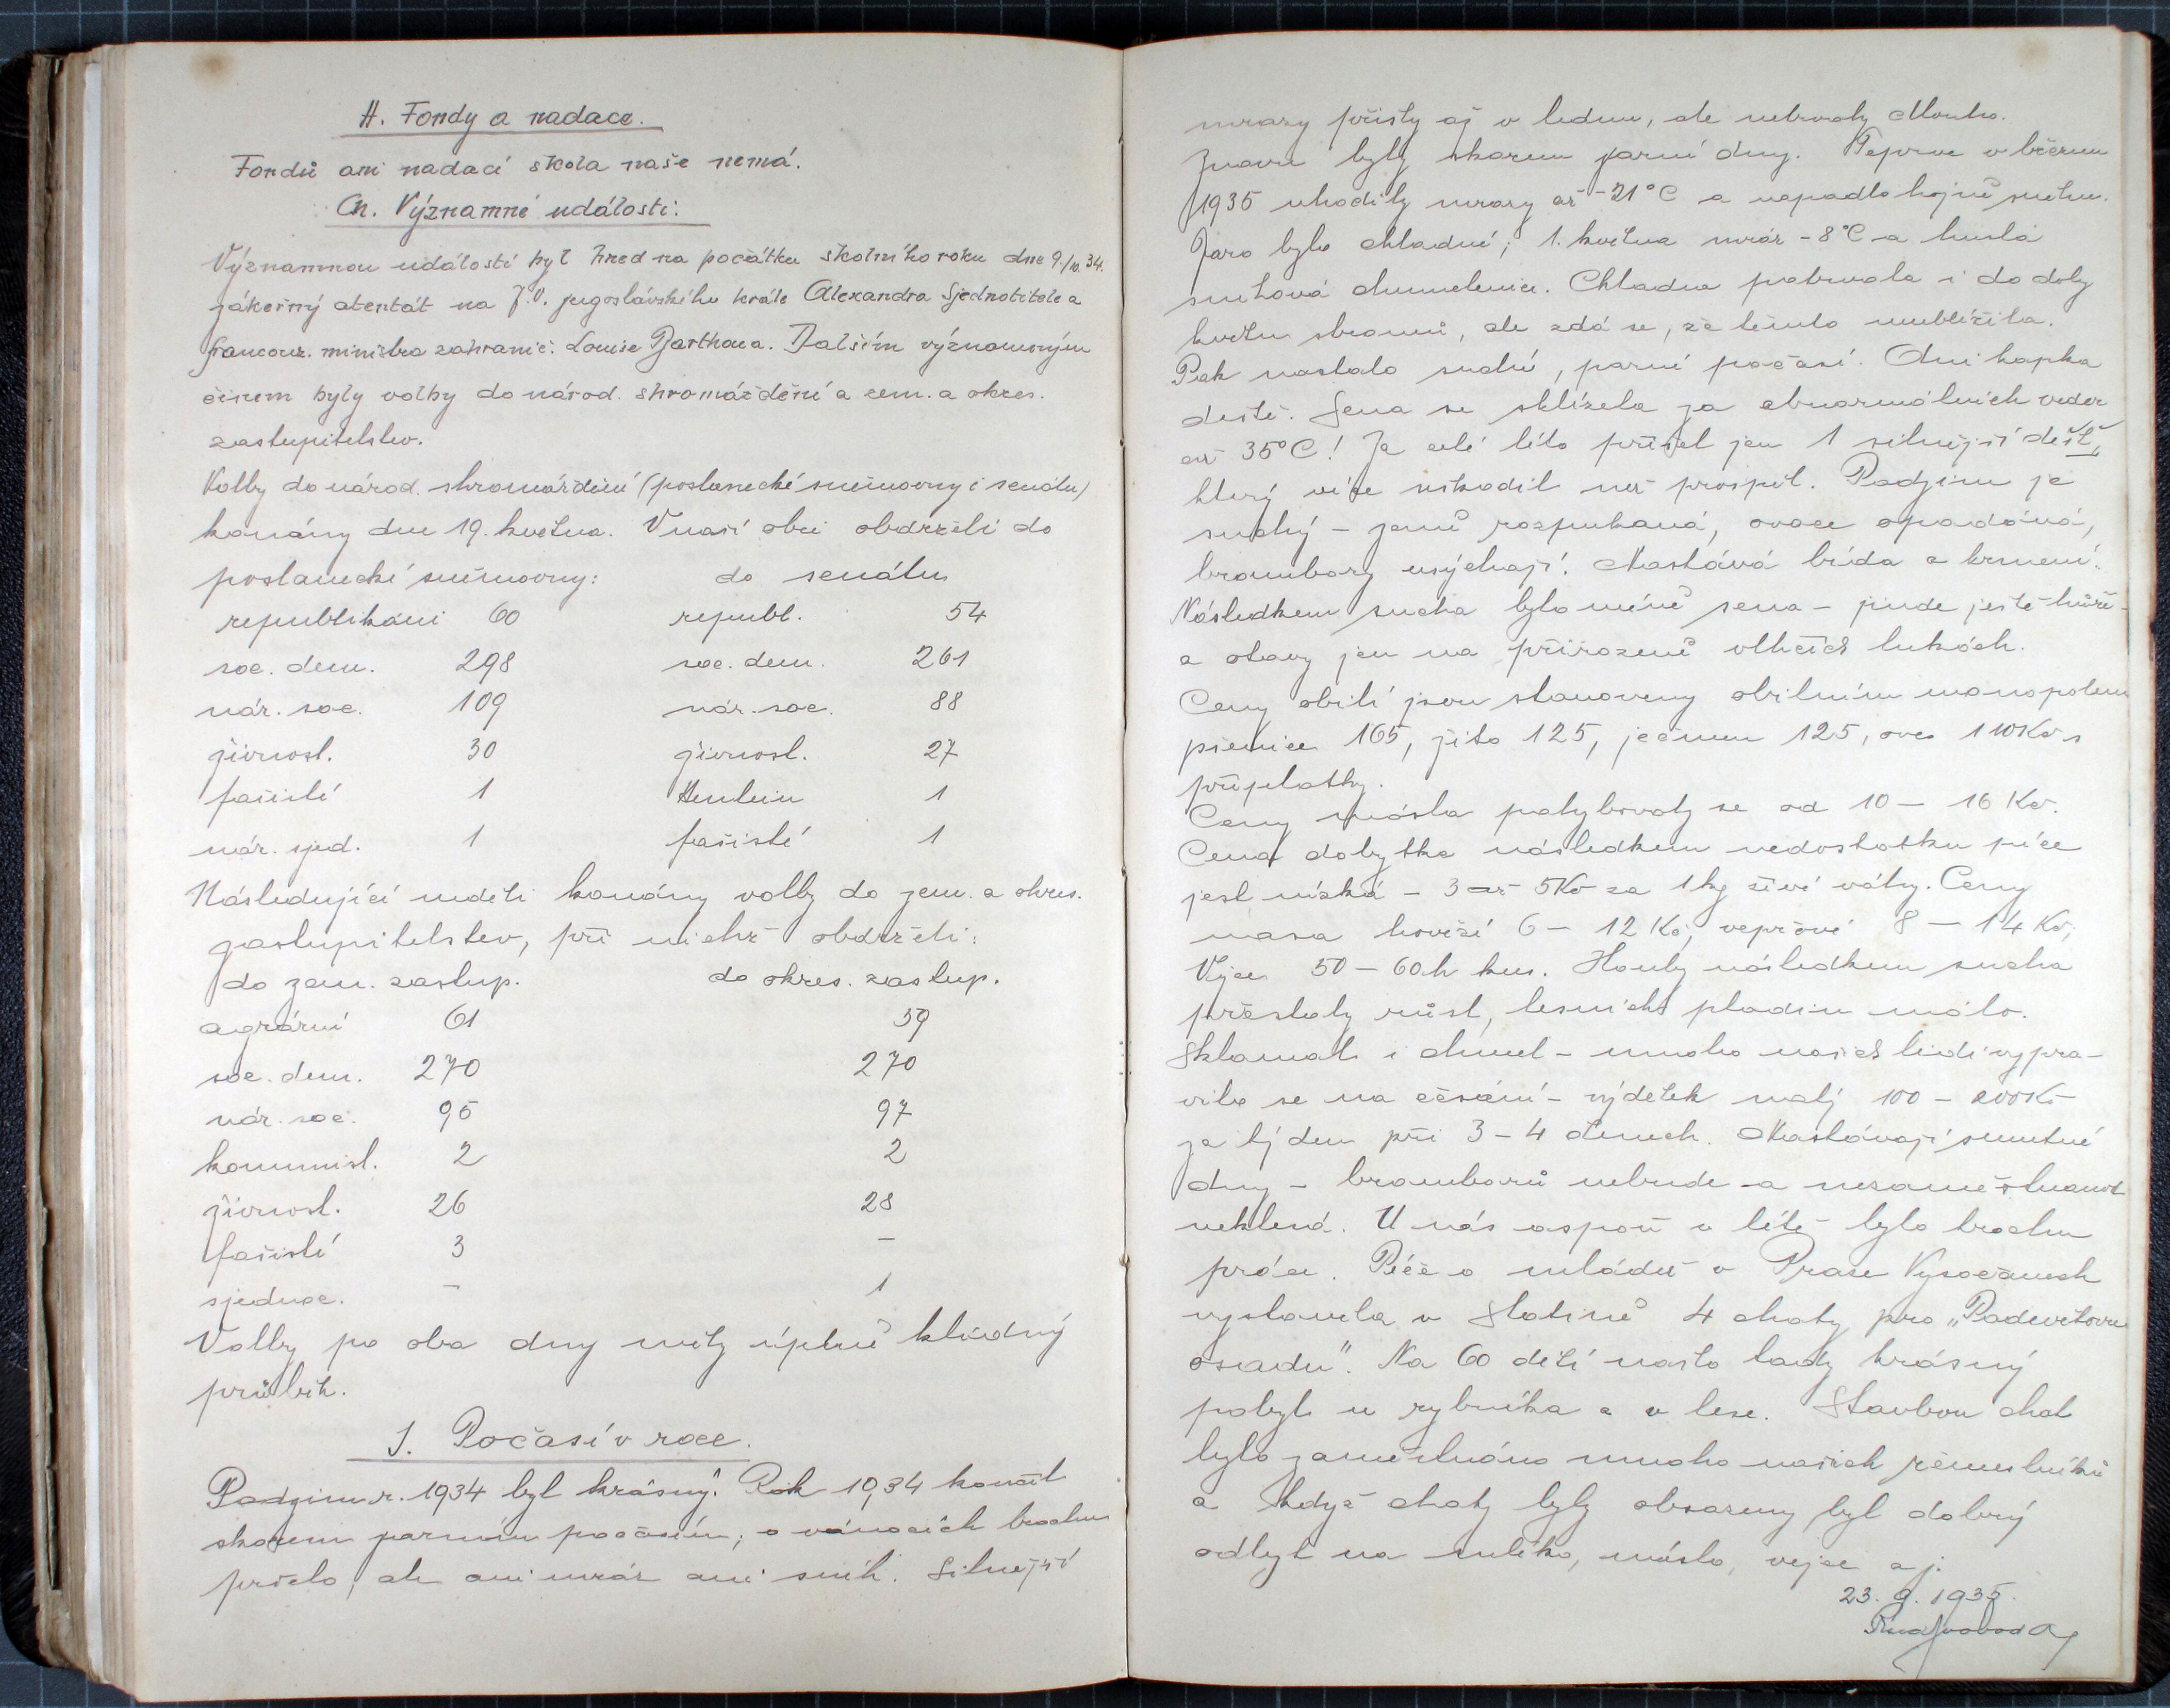 H. Fondy a nadace.
Fondů ani nadací škola naše nemá.
Ch. Významné události:
Významnou událostí byl hned na počátku školního roku dne 9./10. 34.
zákeřný atentát na J.V. jugoslávského krále Alexandra Sjednotitele a
francouz. ministra zahranič. Louise Barthoua. Dalším významným
činem byly volby do národ. shromáždění a zem. a okres.
zastupitelstev.
Volby do národ. shromáždění (poslanecké sněmovny i senátu)
konány dne 19. května. V naší obci obdrželi do
poslanecké sněmovny: do senátu
republikáni 60 republ. 54
soc. dem. 298 soc. dem. 261
nár. soc. 109 nár. soc. 88
živnost. 30 živnost. 27
fašisté 1 Henlein 1
nár. sjed. 1 fašisté 1
Následující neděli konány volby do zem. a okres.
zastupitelstev, při nichž obdrželi:
do zem. zastup. do okres. zastup.
agrární 61 59
soc. dem. 270 270
nár. soc. 95 97
kommnist. 2 2
živnost. 26 28
fašisté 3 –
sjednoc. – 1
Volby po oba dny měly úplně klidný
průběh.
I. Počasí v roce.
Podzim r. 1934 byl krásný. Rok 1934 končil
skorem parným počasím; o vánocích trochu
pršelo, ale ani mráz ani sníh. Silnější
mrazy přišly až v lednu, ale netrvaly dlouho.
Znovu byly skorem jarní dny. Teprve v březnu
1935 uhodily mrazy až -21°C a napadlo hojně sněhu.
Jaro bylo chladné; 1. května mráz -8°C a hustá
sněhová chumelenice. Chladna potrvala i do doby
květu stromů, ale zdá se, že těmto neublížila.
Pak nastalo suché, parné počasí. Ani kapka
deště. Sena se sklízela za abnormálních veder
až 35°C! Za celé léto přišel jen 1 silnější déšť,
který více uškodil než prospěl. Podzim je
suchý – země rozpukaná, ovoce opadává,
brambory usýchají. Nastává bída o krmení.
Následkem sucha bylo méně sena – jinde ještě hůře –
a otavy jen na přirozeně vlhčích lukách.
Ceny obilí jsou stanoveny obilním monopolem
pšenice 165, žito 125, ječmen 125, oves 110 Kč s
příplatky.
Ceny másla pohybovaly se od 10 – 16 Kč.
Cena dobytka následkem nedostatku píce
jest nízká – 3 až 5 Kč za 1 kg živé váhy. Ceny
masa hovězí 6 – 12 Kč, vepřové 8 – 14 Kč,
Vejce 50 – 60 h kus. Houby následkem sucha
přestaly růst, lesních plodin málo.
Sklamal i chmel – mnoho našich lidí vypra-
vilo se na česání – výdělek malý 100 – 200 Kč
za týden při 3 – 4 členech. Nastávají smutné
dny – bramborů nebude a nezaměstnanost
neklesá. U nás aspoň v létě bylo trochu
práce. Péče o mládež v Praze Vysočanech
vystavěla v Slatině 4 chaty pro „Podvětovu
osadu“. Na 60 dětí našlo tady krásný
pobyt u rybníka a v lese. Stavbou chat
bylo zaměstnáno mnoho našich řemeslníků
a když chaty byly obsazeny byl dobrý
odbyt na mléko, máslo, vejce aj.
23. 9. 1935.